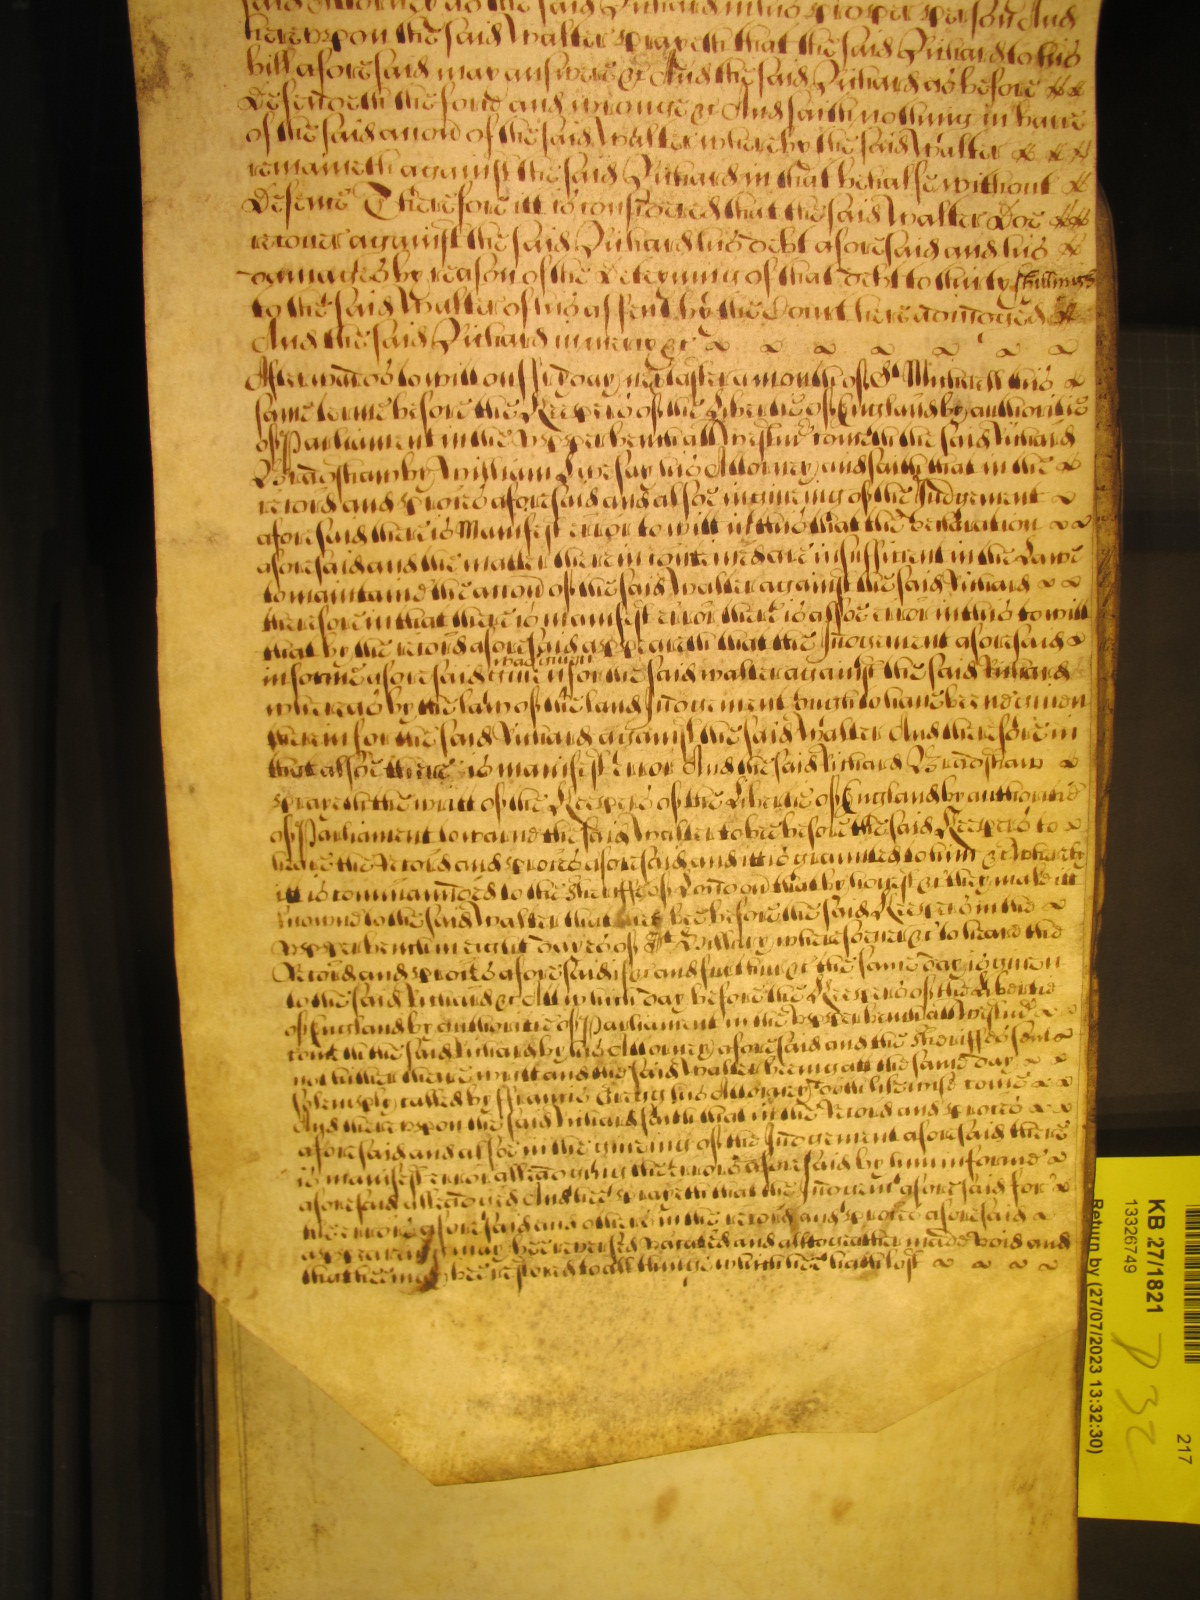 said Attorney as the said Richard in his proper person And
hereupon the said Walter prayeth that the said Richard to his
bill aforesaid may answere &c And the said Richard as before
Defendeth the force and wronge &c And saith nothing in barre
of the said accon of the said Walter whereby the said Walter
remaineth against the said Richard in that behalfe without
Defence Therefore itt is considered that the said Walter Doe
recover against the said Richard his debt aforesaid and his
damages by reason of the deteyning of that debt to thirty shillings
to the said Walter of his assent by the Court here adiudged
And the said Richard in mercy &c
Afterwards to witt on fryday next after a month of St Michaell this
same terme before the Keepers of the Libertie of England by authoritie
of Parliament in the upper bench att Westmr cometh the said Richard
Bradshaw by William Livesay his Attorney and saith that in the
record and proces aforesaid and alsoe in giveing of the Judgement
aforesaid there is Manifest error to witt in this that the declaration
aforesaid and the matter therein conteined are insufficient in the Lawe
to maintaine the accon of the said Walter against the said Richard
therefore in that there is manifest error there is alsoe error in this to witt
that by the record aforesaid appeareth that the Judgement aforesaid
in forme aforesaid was given for the said walter against the said Richard
whereas by the law of the land Judgement ought to have beene given
therein for the said Richard against the said Walter And therefore in
that alsoe there is manifest error And the said Richard Bradshaw
prayeth the writt of the Keepers of the Libertie of England by authoritie
of Parliament to warne the said Walter to bee before the said Keepers to
heare the Record and proces aforesaid and itt is granted to him &c whereby
itt is commaunded to the Sheriffe of London that by honest &c they make itt
knowne to the said Walter that hee bee before the said Keepers in the
upper bench in eight dayes of St Hillary wheresoever &c to heare the
Record and proces aforesaid if &c and further &c the same day is given
to the said Richard &c Att which day before the Keepers of the Libertie
of England by authoritie of Parliament in the upper bench att Westmr
cometh the said Richard by his Attorney aforesaid and the Sheriffes sent
not hither there writt and the said Walter being att the same day
solempnly called by ffrancis Gregg his Attorney doth likewise come
And thereupon the said Richard saith that in the Record and proces
aforesaid and alsoe in the giveing of the Judgement aforesaid there
is manifest error alleadging the errors aforesaid by him in forme
aforesaid alleadged And hee prayeth that the Judgment aforesaid for
the errors aforesaid and others in the record and proces aforesaid
appearing may bee reversed vacated and alltogeather made void and
that hee may bee restored to all things which hee hath lost
KB 27/1821
217
13326749
Return by (27/07/2023 13:32:30)
P 32